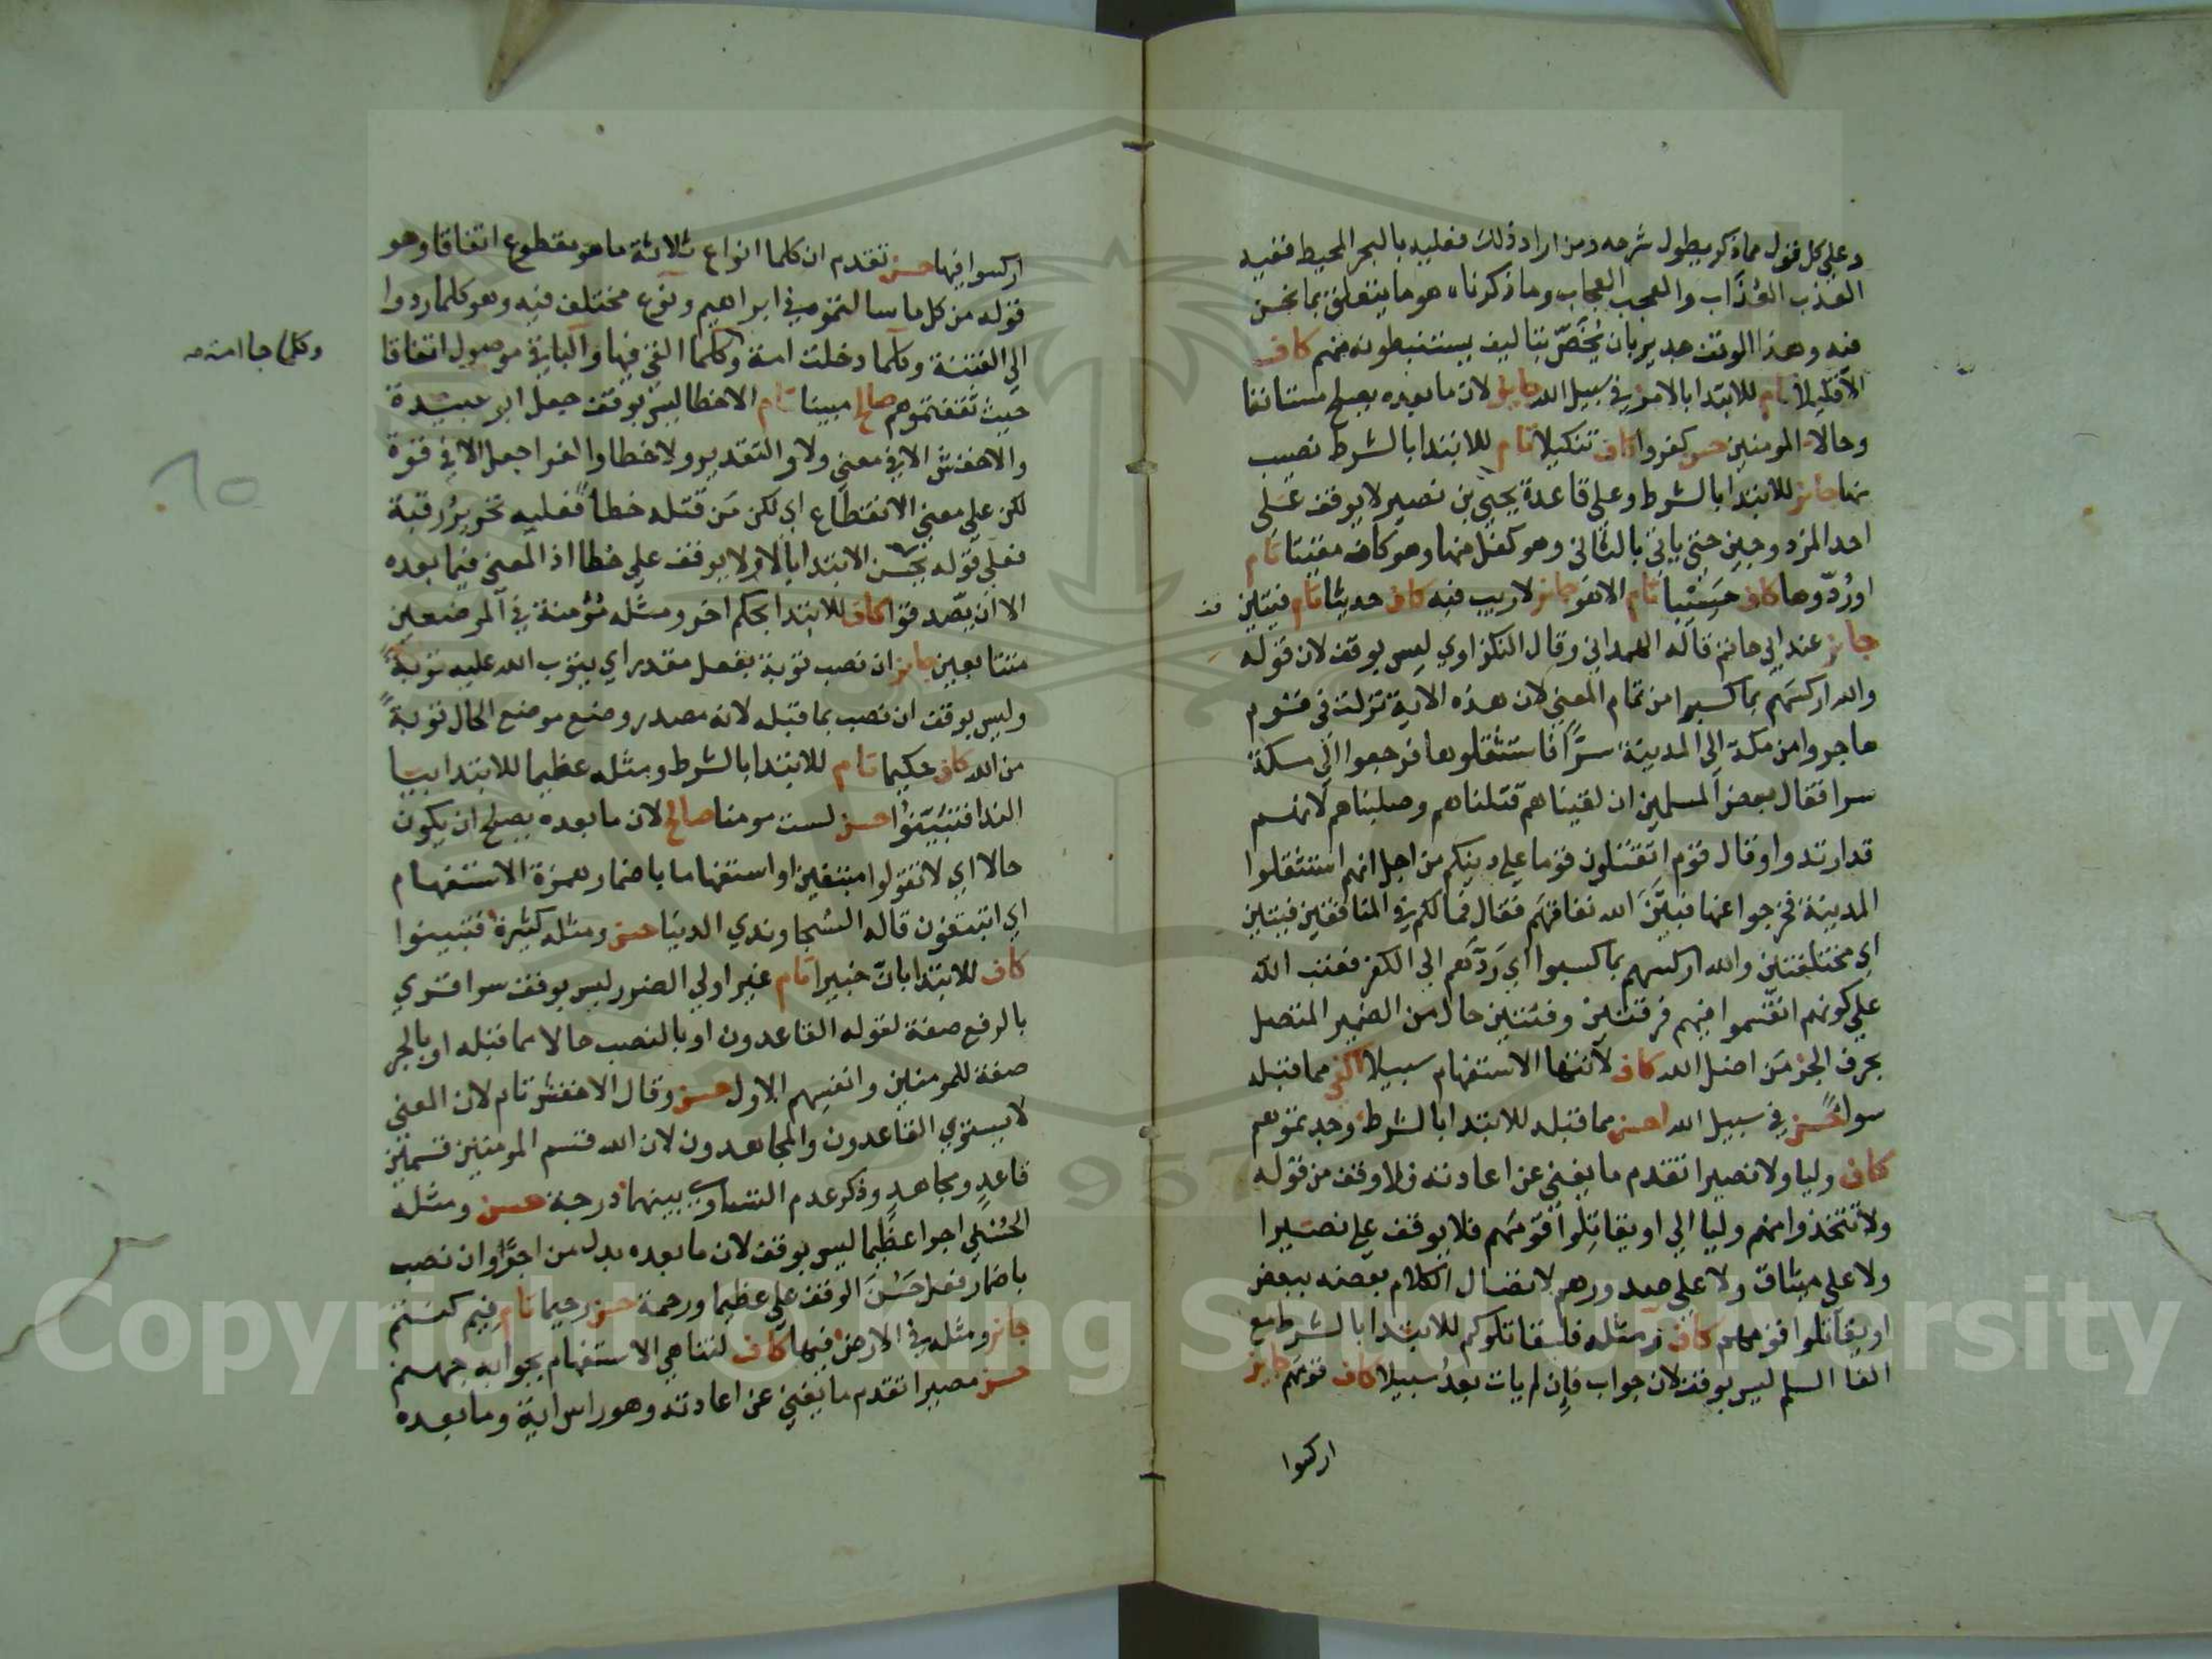 وعلى كل قول مما ذكر يطول شرحه ومن اراد ذلك فعليه بالبحر المحيط ففيه
العذب العُذَاب والعجب العجاب وما ذكرناه هو ما يتعلق بما نحن
فيه وهذا الوقف جدير بان يُخَصّ بتاليف يستنبطونه منهم كاف
الا قليلا تام للابتدا بالامر في سبيل الله جايز لان ما بعده يصلح مستانفا
وحالا المومنين حسن كفروا كاف تنكيلا تام للابتدا بالشرط نصيب
منها جائز للابتدا بالشرط وعلى قاعدة يحيى بن نصير لا يوقف على
احد المزدوجين حتى ياتي بالثاني وهو كفل منها وهو كاف مقيتا تام
او رُدّوها كاف حسيبا تام الا هو جائز لا ريب فيه كاف حديثا تام فئتين
جايز عند ابي حاتم قاله الهمداني وقال النكزاوي ليس بوقف لان قوله
والله اركسهم بما كسبوا من تمام المعنى لان هذه الاية نزلت في قوم
هاجروا من مكة الى المدينة سرًّا فاستثقلوها فرجعوا الى مكة
سرا فقال بعض المسلمين ان لقيناهم قتلناهم وصلبناهم لانهم
قد ارتدوا وقال قوم اتقتلون قوما على دينكم من اجل انهم استثقلوا
المدينة فخرجوا عنها فبيَّن الله نفاقهم فقال فما لكم في المنافقين فئتين
اي مختلفتين والله اركسهم بما كسبوا اي رَدَّهم الى الكفر فعتب الله
على كونهم انقسموا فيهم فرقتين وفئتين حال من الضمير المتصل
بحرف الجر من اضل الله كاف لانتها الاستفهام سبيلا اكفى مما قبله
سوا حسن في سبيل الله احسن مما قبله للابتدا بالشرط وجدتموهم
كاف وليا ولا نصيرا تقدم ما يغني عن اعادته ولا وقف من قوله
ولا تتخذوا منهم وليا الى او يقاتلوا قومهم فلا يوقف على نصيرا
ولا على ميثاق ولا على صدورهم لاتصال الكلام بعضه ببعض
او يقاتلوا قومهم كاف ومثله فلقاتلوكم للابتدا بالشرط مع
الفا السلم ليس بوقف لان جواب فان لم يات بعد سبيلا كاف قومهم جايز
اركسوا
اركسوا فيها حسن تقدم ان كلما انواع ثلاثة ما هو مقطوع اتفاقا وهو
قوله من كل ما سالتموه في ابراهيم ونوع مختلف فيه وهو كلما ردوا
الى الفتنة وكلما دخلت امة وكلما القي فيها والباقي موصول اتفاقا
وكلما جا امة صح
حيث ثقفتموهم صالح مبينا تام الا خطا ليس بوقف جعل ابو عبيدة
والاخفش الا في معنى ولا والتقدير ولا خطا والفرا جعل الا في قوة
لكن على معنى الانقطاع اي لكن مَن قتله خطأً فعليه تحريرُ رقبة
فعلى قوله يحسن الابتدا بالا ولا يوقف على خطا اذ المعنى فيما بعده
الا ان يصّدقوا كاف للابتدا بحكم اخر ومثله مُؤمنة في الموضعين
متتابعين جايز ان نصب توبة بفعل مقدر اي يتوب الله عليه توبةً
وليس بوقف ان نصب بما قبله لانه مصدر وضع موضع الحال توبةً
من الله كاف حكيما تام للابتدا بالشرط ومثله عظيما للابتدا بييا
الندا فتبيّنوا حسن لست مومنا صالح لان ما بعده يصلح ان يكون
حالا اي لا تقولوا مبتغين او استفهاما باضمار همزة الاستفهام
اي اتبتغون قاله السجاوندي الدنيا حسن ومثله كثيرة فتبينوا
كاف للابتدا بان خبيرا تام غير اولي الضرر ليس بوقف سوا قري
بالرفع صفة لقوله القاعدون او بالنصب حالا مما قبله او بالجر
صفة للمومنين وانفسهم الاول حسن وقال الاخفش تام لان المعنى
لا يستوي القاعدون والمجاهدون لان الله قسم المومنين قسمين
قاعدٍ ومجاهدٍ وذكر عدم التساوي بينهما درجة حسن ومثله
الحسنى اجرا عظيما ليس بوقف لان ما بعده بدل من اجرًا وان نصب
باضمار فعل حَسُنَ الوقف على عظيما ورحمة حسن رحيما تام فيم كنتم
جائز ومثله في الارض فيها كاف لتناهي الاستفهام بجوابه جهنم
حسن مصيرا تقدم ما يغني عن اعادته وهو راس اية وما بعده
٦٥
Copyright © King Saud University
1957